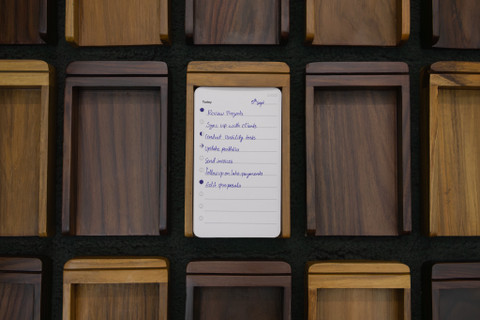 Today
Review Projects
Sync up with clients
Conduct Usability tests
Update portfolio
Send invoices
Follow up on late payments
Edit proposals